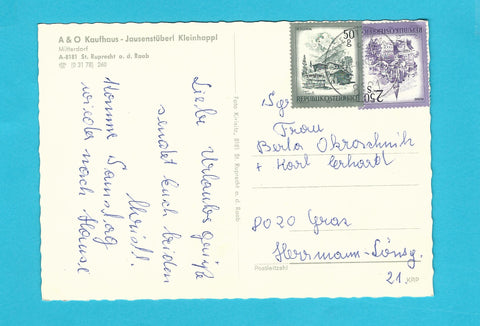 A & O Kaufhaus - Jausenstüberl Kleinhappl
Mitterdorf
A-8181 St. Ruprecht a. d. Raab
☎ (0 31 78)
Liebe Urlaubsgrüße
sendet Euch beiden
Christl.
Komme Samstag
wieder nach Hause
Foto 8181 St. Ruprecht a. d. Raab
50 g
REPUBLIK ÖSTERREICH
2.50 S
REPUBLIK ÖSTERREICH
Frau
Berta
+ Karl Erhardt
8020 Graz
Herrmann-Lönsg.
21.
Postleitzahl